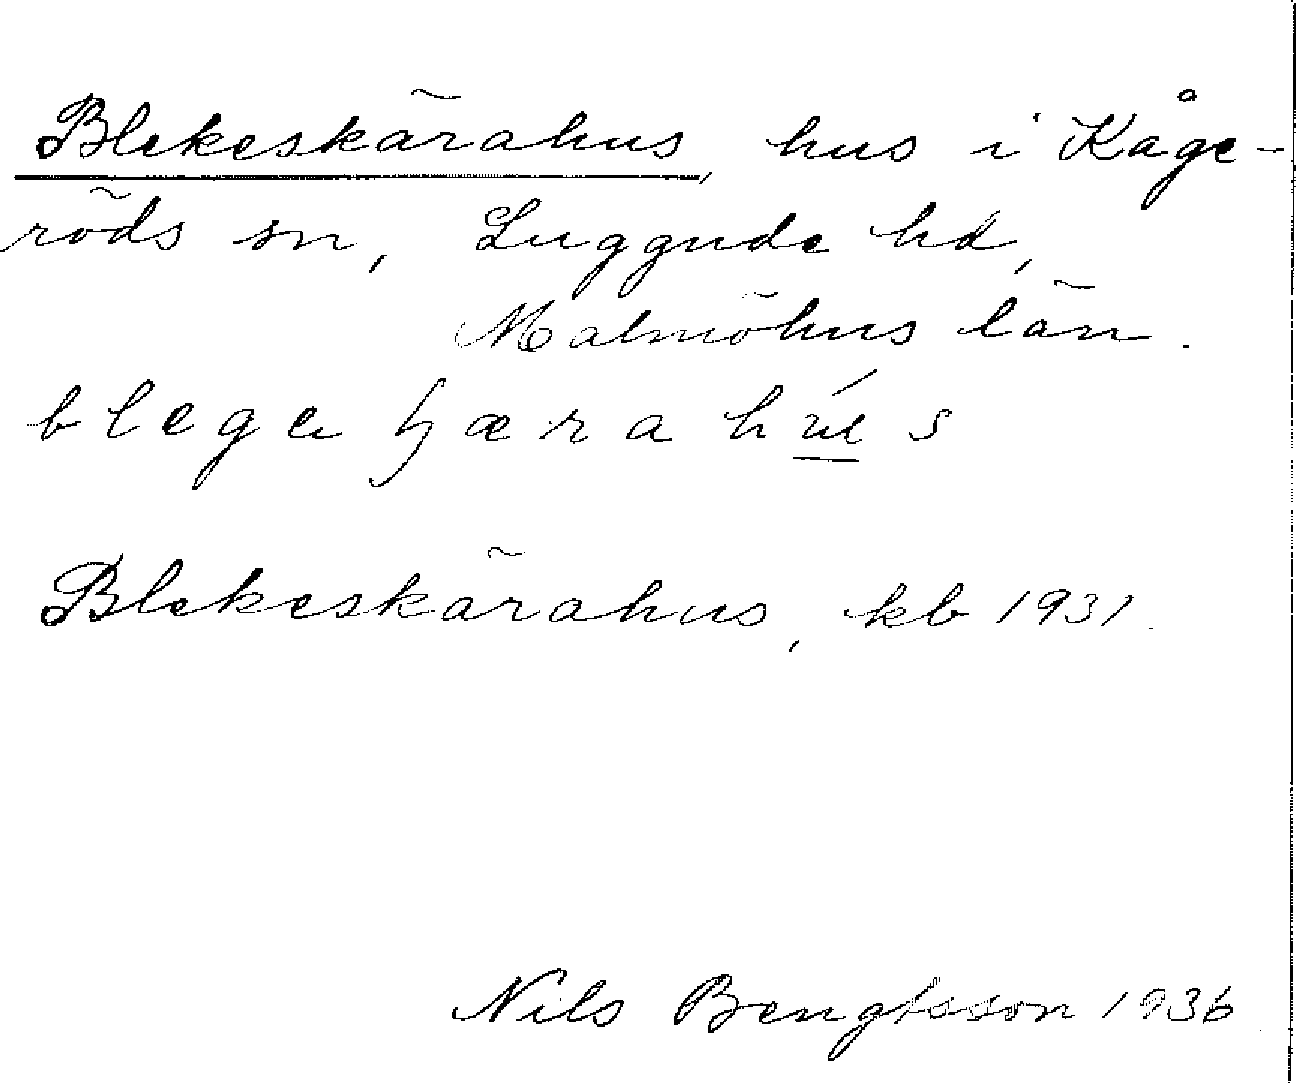 Blekeskärahus, hus i Kåge-
röds sn, Luggude hd,
Malmöhus län.
blega ʃæra hú̲s
Blekeskärahus, kb 1931.
Nils Bengtsson 1936